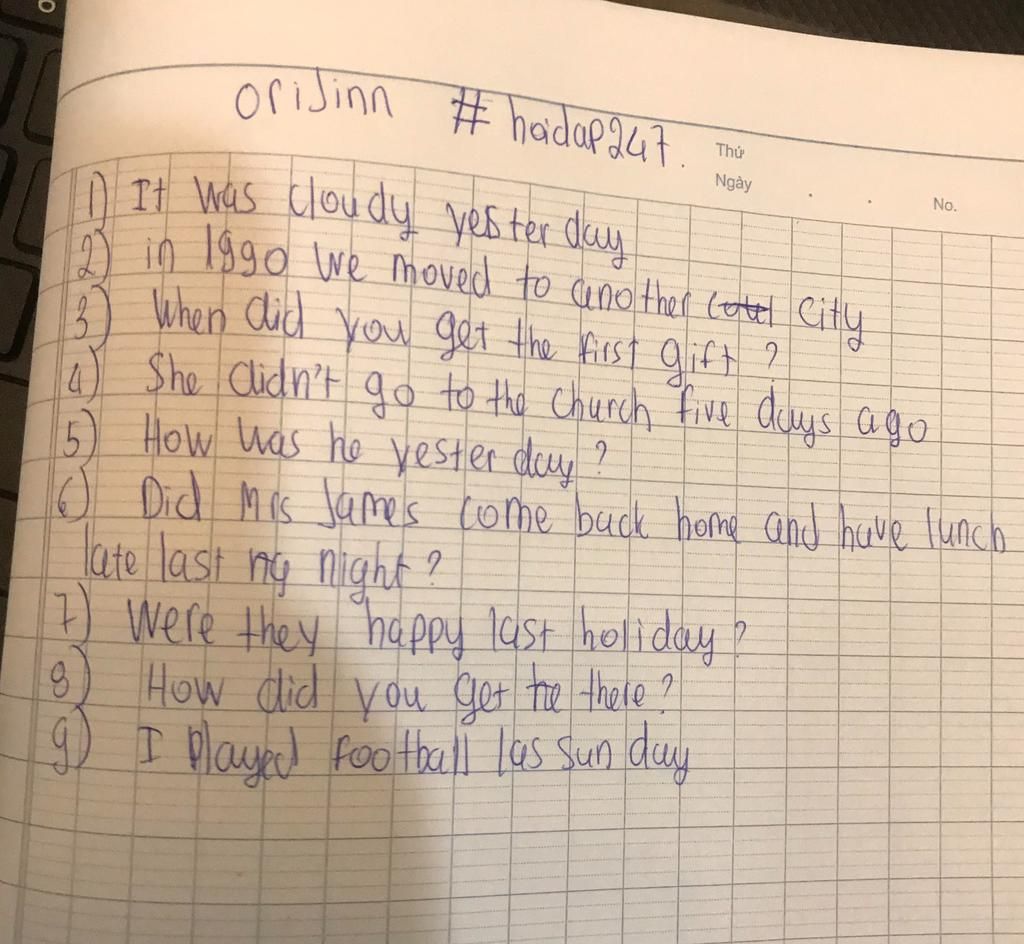 oriJinn # hoidap247.
Thứ
Ngày . . No.
1) It was cloudy yesterday
2) in 1990 we moved to another city
3) When did you get the first gift ?
4) She didn't go to the church five days ago
5) How was he yesterday ?
6) Did Mrs James come back home and have lunch
late last night ?
7) Were they happy last holiday ?
8) How did you get there ?
9) I played football las sunday